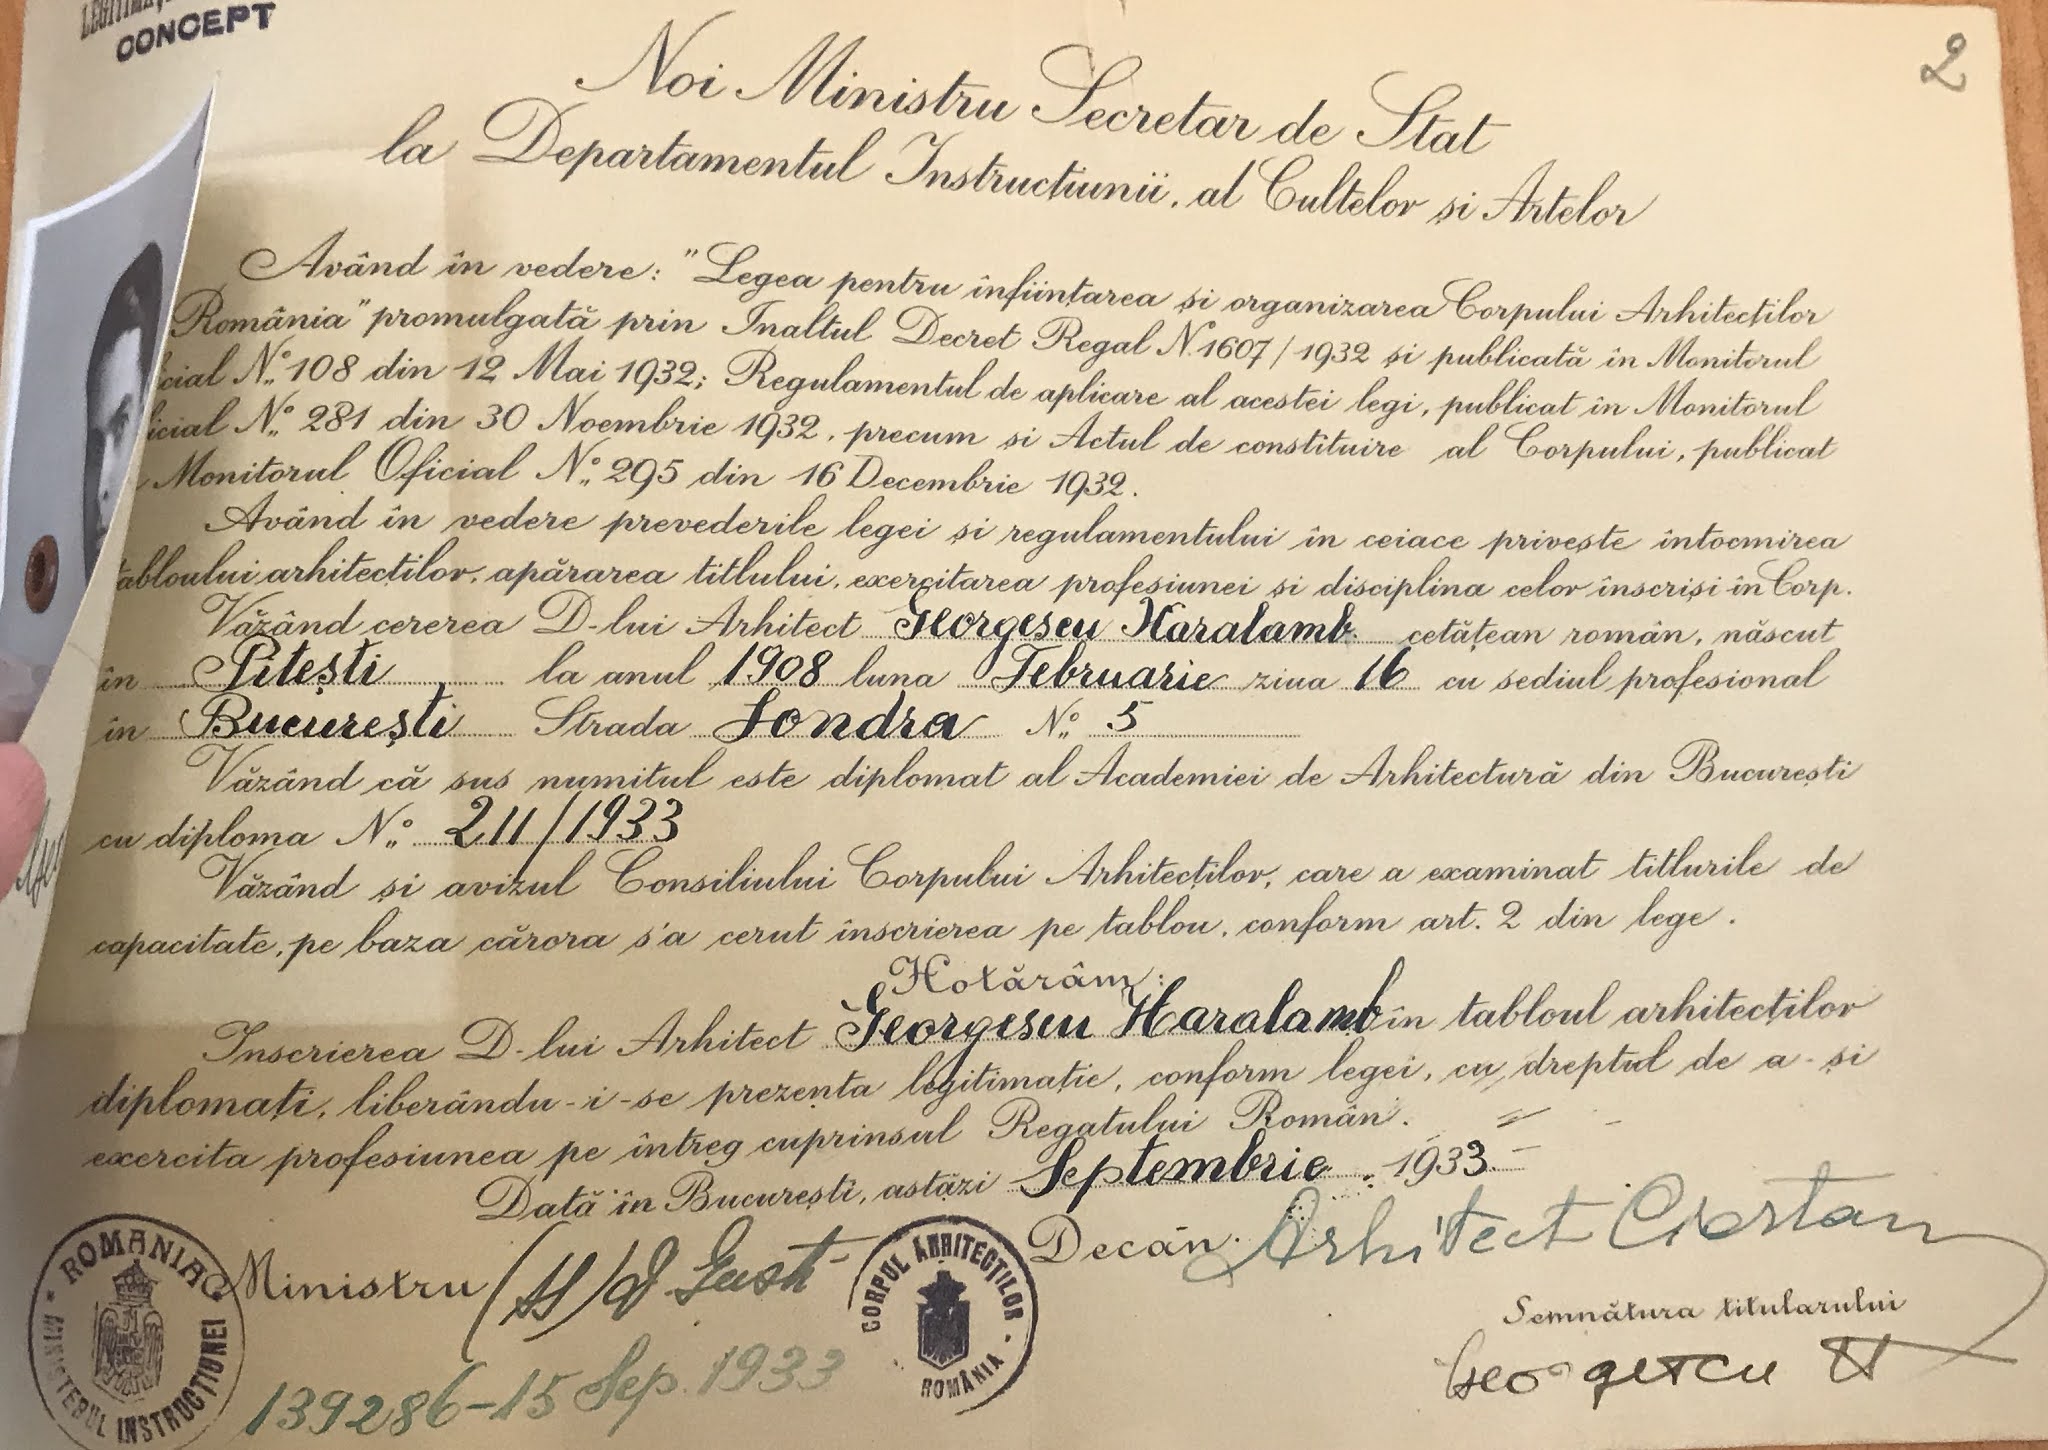 CONCEPT
2
Noi Ministru Secretar de Stat
la Departamentul Instrucțiunii, al Cultelor și Artelor
Având în vedere: "Legea pentru înființarea și organizarea Corpului Arhitecților
România" promulgată prin Inaltul Decret Regal N. 1607/1932 și publicată în Monitorul
cial No. 108 din 12 Mai 1932; Regulamentul de aplicare al acestei legi, publicat în Monitorul
icial No. 281 din 30 Noembrie 1932, precum și Actul de constituire al Corpului, publicat
Monitorul Oficial No. 295 din 16 Decembrie 1932.
Având în vedere prevederile legei și regulamentului în ceiace privește întocmirea
tabloului arhitecților, apărarea titlului, exercitarea profesiunei și disciplina celor înscriși în Corp.
Văzând cererea D-lui Arhitect Georgescu Haralamb. cetățean român, născut
în Pitești la anul 1908 luna Februarie ziua 16 cu sediul profesional
în București Strada Londra No. 5
Văzând că sus numitul este diplomat al Academiei de Arhitectură din București
cu diploma No. 211/1933
Văzând și avizul Consiliului Corpului Arhitecților, care a examinat titlurile de
capacitate, pe baza cărora s'a cerut înscrierea pe tablou, conform art. 2 din lege.
Hotărâm:
Inscrierea D-lui Arhitect Georgescu Haralamb în tabloul arhitecților
diplomați, liberându-i-se prezența legitimație, conform legei, cu dreptul de a-și
exercita profesiunea pe întreg cuprinsul Regatului Român.
Dată în București, astăzi Septembrie 1933.
Ministru (ss) D. Gusti
Decan. Arhitect
ROMANIA
MINISTERUL INSTRUCȚIUNEI
CORPUL ARHITECȚILOR
ROMÂNIA
Semnătura titularului
Georgescu H
139286-15 Sep. 1933